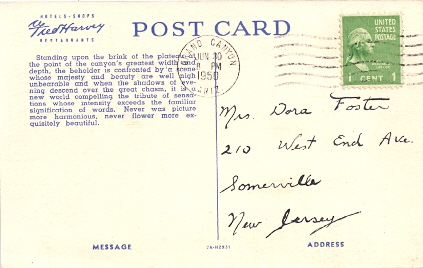 HOTELS · SHOPS
Fred Harvey
RESTAURANTS
POST CARD
Standing upon the brink of the plateau at
the point of the canyon's greatest width and
depth, the beholder is confronted by a scene
whose majesty and beauty are well nigh
unbearable and when the shadows of eve-
ning descend over the great chasm, it is a
new world compelling the tribute of sensa-
tions whose intensity exceeds the familiar
signification of words. Never was picture
more harmonious, never flower more ex-
quisitely beautiful.
GRAND CANYON
JUN 10
8 PM
1950
ARIZ.
UNITED
STATES
POSTAGE
1 CENT 1
Mrs. Dora Foster
210 West End Ave.
Somerville
New Jersey
MESSAGE
7A-H2931
ADDRESS